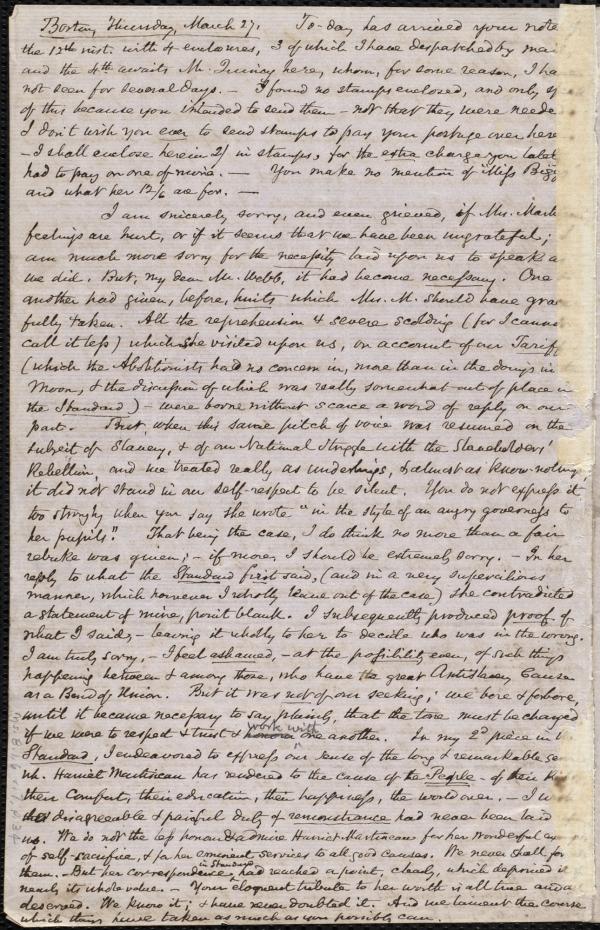 Boston, Thursday, March 27. To-day has arrived your note
the 12th inst. with 4 enclosures, 3 of which I have despatched by
and the 4th awaits Mr. Quincy here, whom, for some reason, I ha
not seen for several days. — I found no stamps enclosed, and only
of this because you intended to send them — not that they were neede
I don't wish you ever to send stamps to pay your postage over here
— I shall enclose herein 2/ in stamps, for the extra charge you
had to pay on one of mine. — You make no mention of "Miss
and what her 12/6 are for. —
I am sincerely sorry, and even grieved, if Mrs.
feelings are hurt, or if it seems that we have been ungrateful;
am much more sorry for the necessity laid upon us to speak a
we did. But, my dear Mr. Webb, it had become necessary. One
another had given, before, hints which Mrs. M. should have
fully taken. All the reprehension & severe scolding (for I canno
call it less) which she visited upon us, on account of our Tariff
(which the Abolitionists had no concern in, more than in the doings in
Moon, & the discussion of which was really somewhat out of place in
the Standard) — were borne without scarce a word of reply on our
part. But, when this same pitch of voice was resumed on the
subject of Slavery, & of our National Struggle with the Slaveholders'
Rebellion, and we treated really as underlings, & almost as know-nothing
it did not stand in our self-respect to be silent. You do not express it
too strongly when you say she wrote "in the style of an angry governess to
her pupils". That being the case, I do think no more than a fair
rebuke was given; — if more, I should be extremely sorry. — In her
reply to what the Standard first said, (and in a very supercilious
manner, which however I wholly leave out of the case) she contradicted
a statement of mine, point blank. I subsequently produced proof of
what I said, — leaving it wholly to her to decide who was in the wrong.
I am truly sorry, — I feel ashamed, — at the possibility, even, of such things
happening between & among those, who have the great Antislavery Cause
as a Bond of Union. But it was not of our seeking; we bore & forbore,
until it became necessary to say, plainly, that the tone must be changed
if we were to respect & trust & work with one another. In my 2d piece in
Standard, I endeavored to express our sense of the long & remarkable
wh. Harriet Martineau has rendered to the cause of the People — of their
their Comfort, their education, their happiness, the world over. — I
disagreeable & painful duty of remonstrance had never been laid
us. We do not the less honour & admire Harriet Martineau for her wonderful
of self-sacrifice, & for her eminent services to all good causes. We never shall for
them. — But her correspondence, in Standard, had reached a point, clearly, which deprived it
nearly its whole value. — Your eloquent tribute to her worth is all true and
deserved. We know it; & have never doubted it. And we lament the course
which things have taken as much as you possibly can.